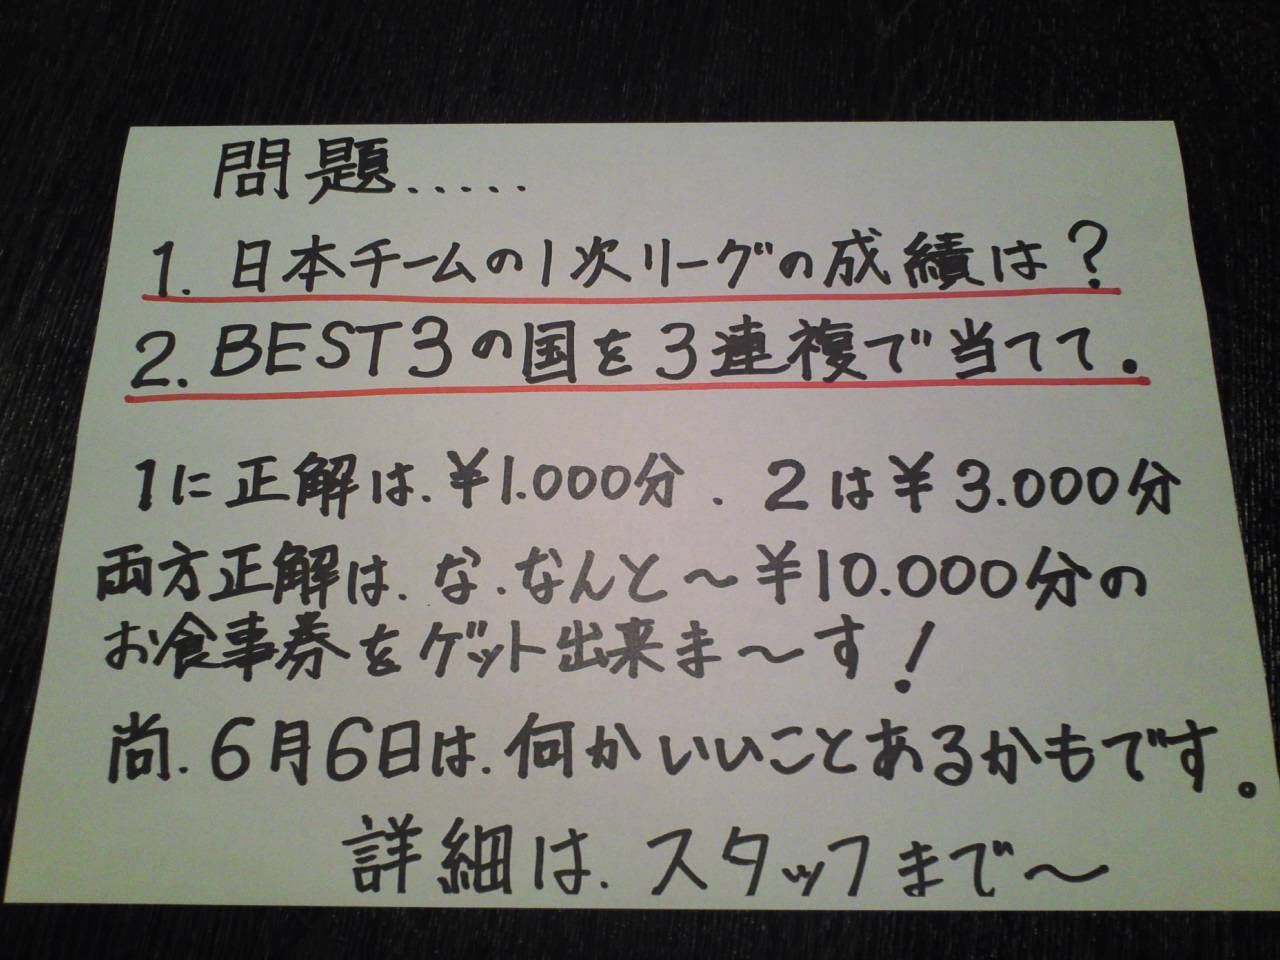 問題.....
1. 日本チームの1次リーグの成績は?
2. BEST3の国を3連複で当てて.
1に正解は.¥1.000分.2は¥3.000分
両方正解は.な.なんと～¥10.000分の
お食事券をゲット出来ま～す!
尚.6月6日は.何かいいことあるかもです。
詳細は.スタッフまで～